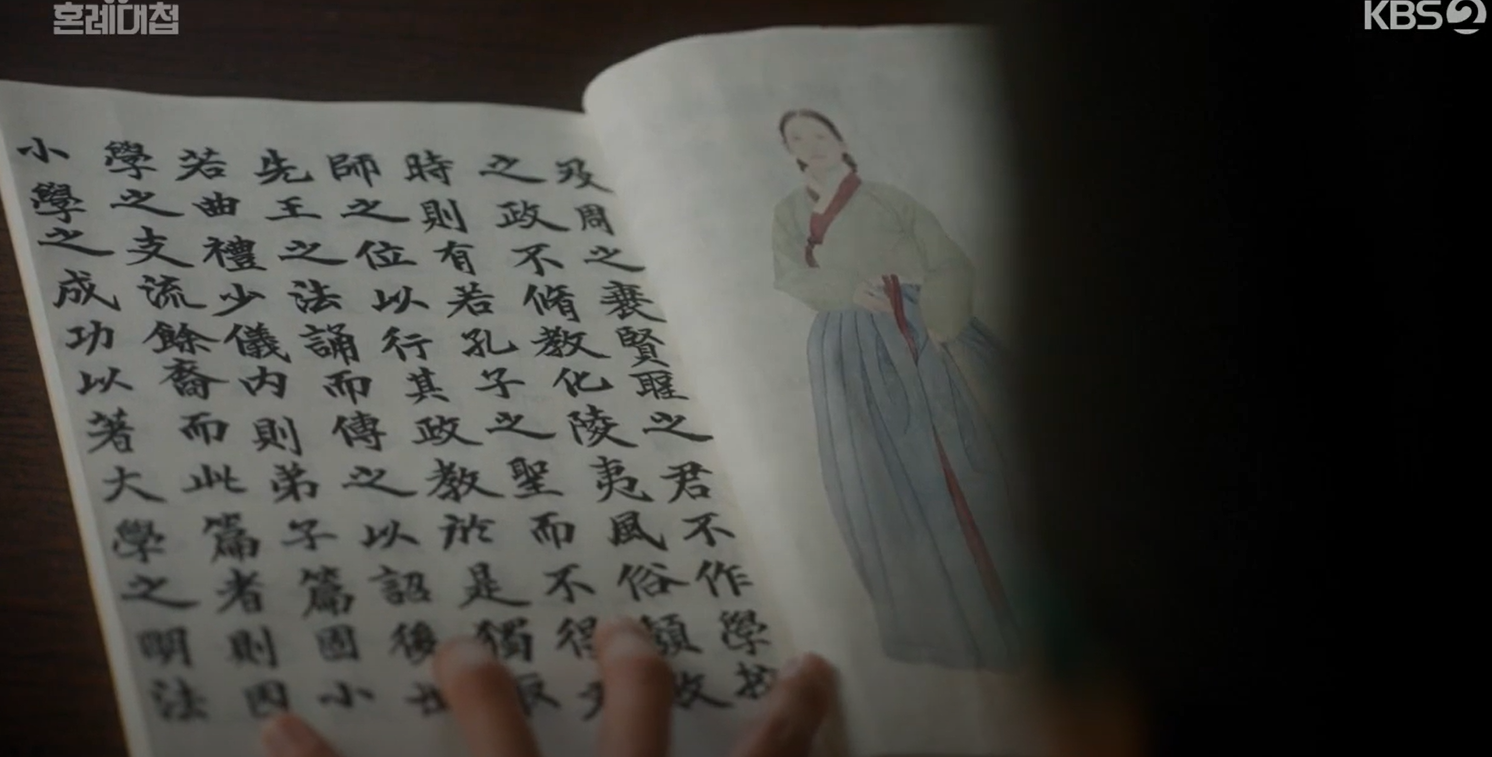 혼례대첩
KBS2
及周之衰賢聖之君不作學
之政不脩教化陵夷風俗頹敗
時則有若孔子之聖而不得
師之位以行其政教於是獨取
先王之法誦而傳之以詔後世
若曲禮少儀内則弟子篇固小
學之支流餘裔而此篇者則因
小學之成功以著大學之明法